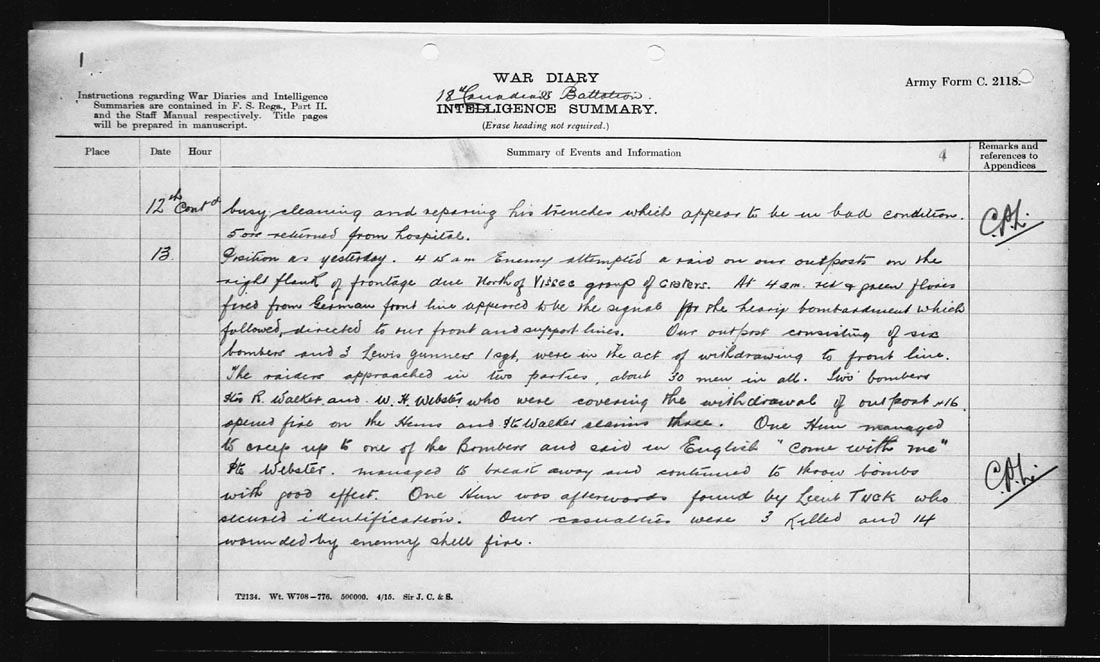 1
WAR DIARY
Army Form C. 2118.
18th Canadian Battalion.
INTELLIGENCE SUMMARY.
(Erase heading not required.)
Instructions regarding War Diaries and Intelligence
Summaries are contained in F. S. Regs., Part II.
and the Staff Manual respectively. Title pages
will be prepared in manuscript.
Place Date Hour Summary of Events and Information 4 Remarks and
references to
Appendices
12th Cont'd busy cleaning and reparing his trenches which appear to be in bad condition.
5 OR returned from hospital.
13. Position as yesterday. 4 15 am Enemy attempted a raid on our outposts on the
right flank of frontage due North of group of craters. At 4 am. red & green flares
fired from German front line appeared to be the signal for the heavy bombardment which
followed, directed to our front and support lines. Our outpost consisting of six
bombers and 3 Lewis gunners 1 sgt, were in the act of withdrawing to front line.
The raiders approached in two parties, about 30 men in all. Two bombers
Ptes R. Walker and W. H. Webster who were covering the withdrawal of outpost 16
opened fire on the Huns and Pte Walker claims three. One Hun managed
to creep up to one of the Bombers and said in English "come with me"
Pte Webster. managed to break away and continued to throw bombs
with good effect. One Hun was afterwards found by Lieut TUCK who
secured identification. Our casualties were 3 killed and 14
wounded by enemy shell fire.
T2134. Wt. W708—776. 500000. 4/15. Sir J. C. & S.